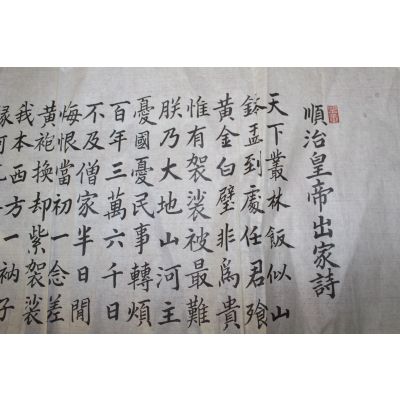 順治皇帝出家詩
天下叢林飯似山
鉢盂到處任君飱
黃金白璧非爲貴
惟有袈裟被最難
朕乃大地山河主
憂國憂民事轉煩
百年三萬六千日
不及僧家半日閒
悔恨當初一念差
黃袍換却紫袈裟
我本西方一衲子